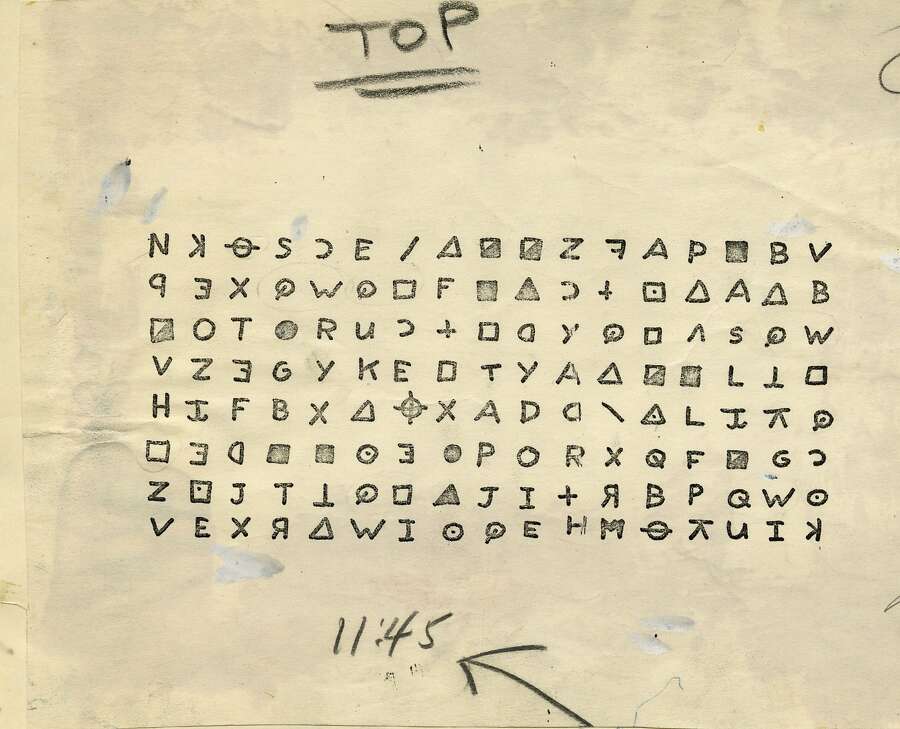 TOP
N ꓘ ⊖ S Ɔ E / ◬ ◪ ◪ Z ꟻ A P ◪ B V
ꟼ Ǝ X ϙ W ⊙ □ F ■ ▲ Ɔ + ⊡ △ A △ B
◪ O T ● R U Ɔ + □ ᗡ Y ϙ □ Λ S ϙ W
V Z Ǝ G Y K E □ T Y A △ ◪ ■ L ⊥ □
H I F B X △ ⌖ X A D ᗡ \ ◬ L I ⊼ ϙ
□ Ǝ ᗡ ■ ■ ⊙ Ǝ ● P O R X Q F ◪ G Ɔ
Z ⊡ J T ⊥ ϙ □ ▲ J I + Я B P Q W ⊙
V E X Я △ W I ⊙ ϙ E H M ⊖ ⊼ U I ꓘ
11:45